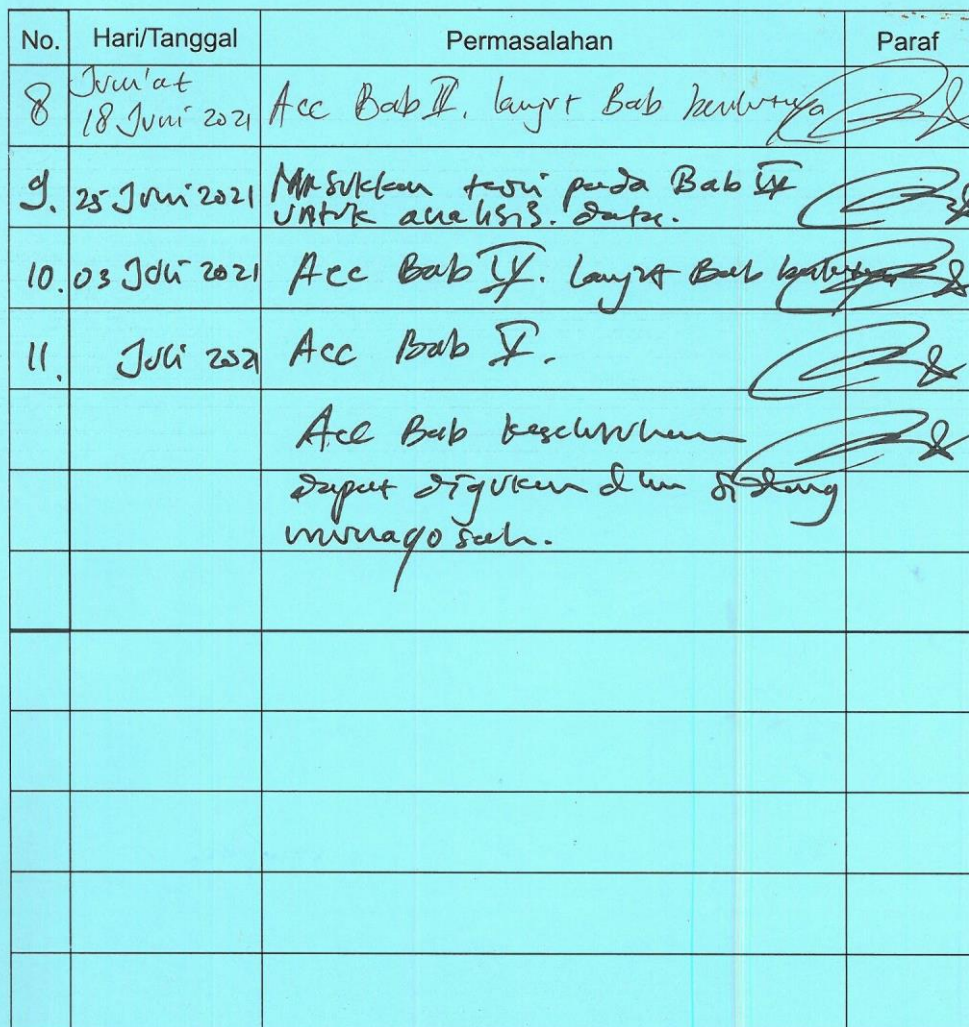 No. Hari/Tanggal Permasalahan Paraf
8 Jum'at
18 Juni 2021 Acc Bab III. lanjut Bab berikutnya
9. 25 Juni 2021 Masukkan teori pada Bab IV
untuk analisis. data.
10. 03 Juli 2021 Acc Bab IV. lanjut Bab berikutnya
11. Juli 2021 Acc Bab V.
Acc Bab keseluruhan
dapat diajukan dlm sidang
munaqosah.